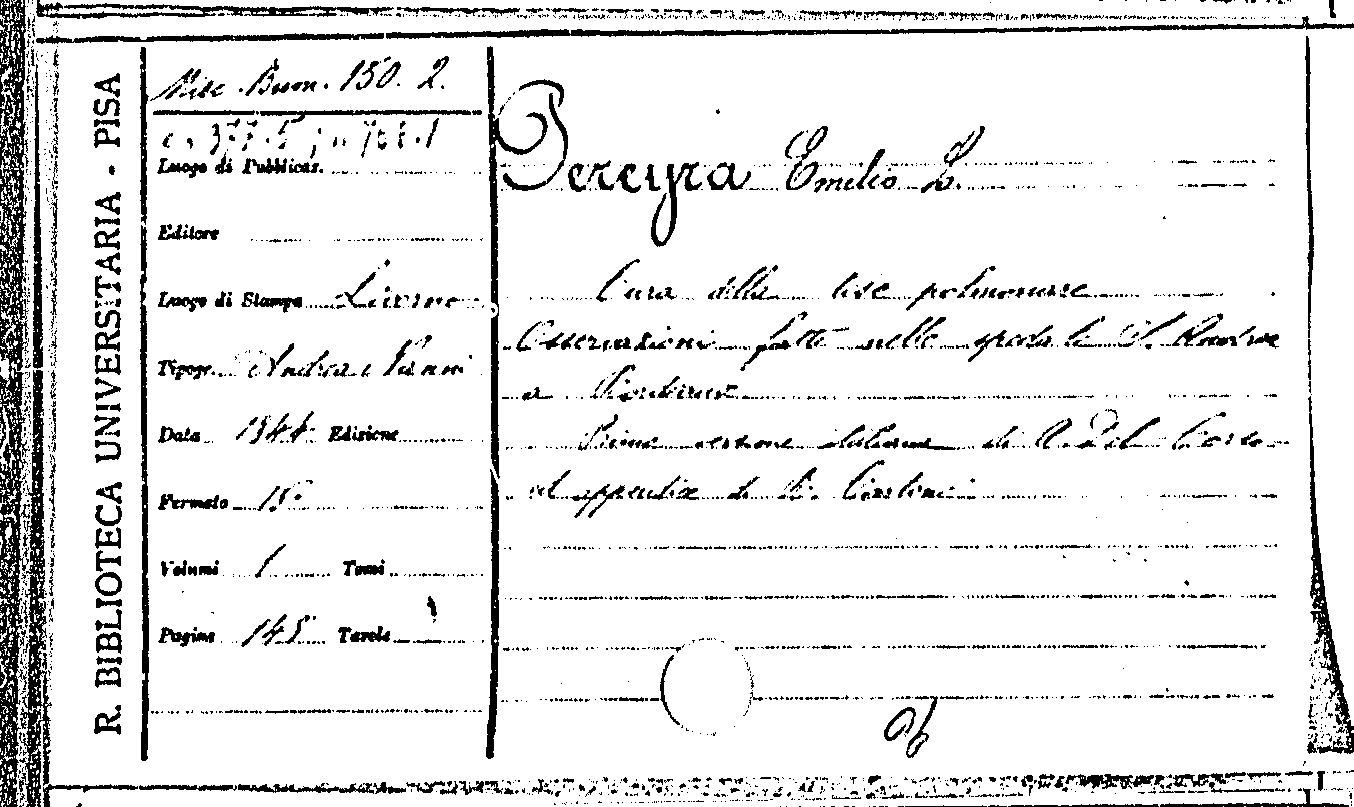 R. BIBLIOTECA UNIVERSITARIA - PISA
Misc. Buon. 150. 2.
Luogo di Pubblicaz.
Editore
Luogo di Stampa Livorno
Tipogr. Andrea e Vannini
Data 1844 Edizione
Formato 15.
Volumi 1 Tomi
Pagine 145 Tavole
Pereyra Emilio L.
Cura della tise polmonare
Osservazioni fatte nello spedale S. Andrea
a Bordeaux
Prima versione italiana di A. Del Corso
ed appendice di